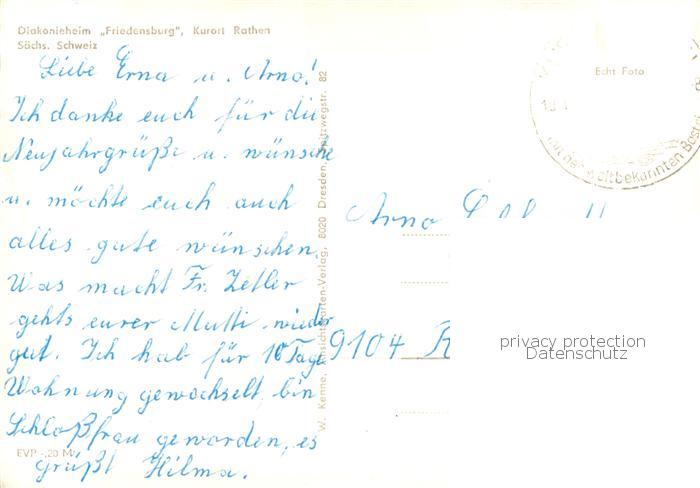 Diakonieheim „Friedensburg", Kurort Rathen
Sächs. Schweiz
Liebe Erna u. Arno!
Ich danke euch für die
Neujahrgrüße u. wünsche
u. möchte euch auch
alles gute wünschen.
Was macht Fr. Zetler
gehts eurer Mutti wieder
gut. Ich hab für 10 Tage
Wohnung gewechselt, bin
Schloßfrau geworden, es
grüßt Hilma.
EVP -,20 M
W. Kenne, Ansichtskarten-Verlag, 8020 Dresden, 82
Echt Foto
mit der weltbekannten Bastei
Arno
9104 R
privacy protection
Datenschutz